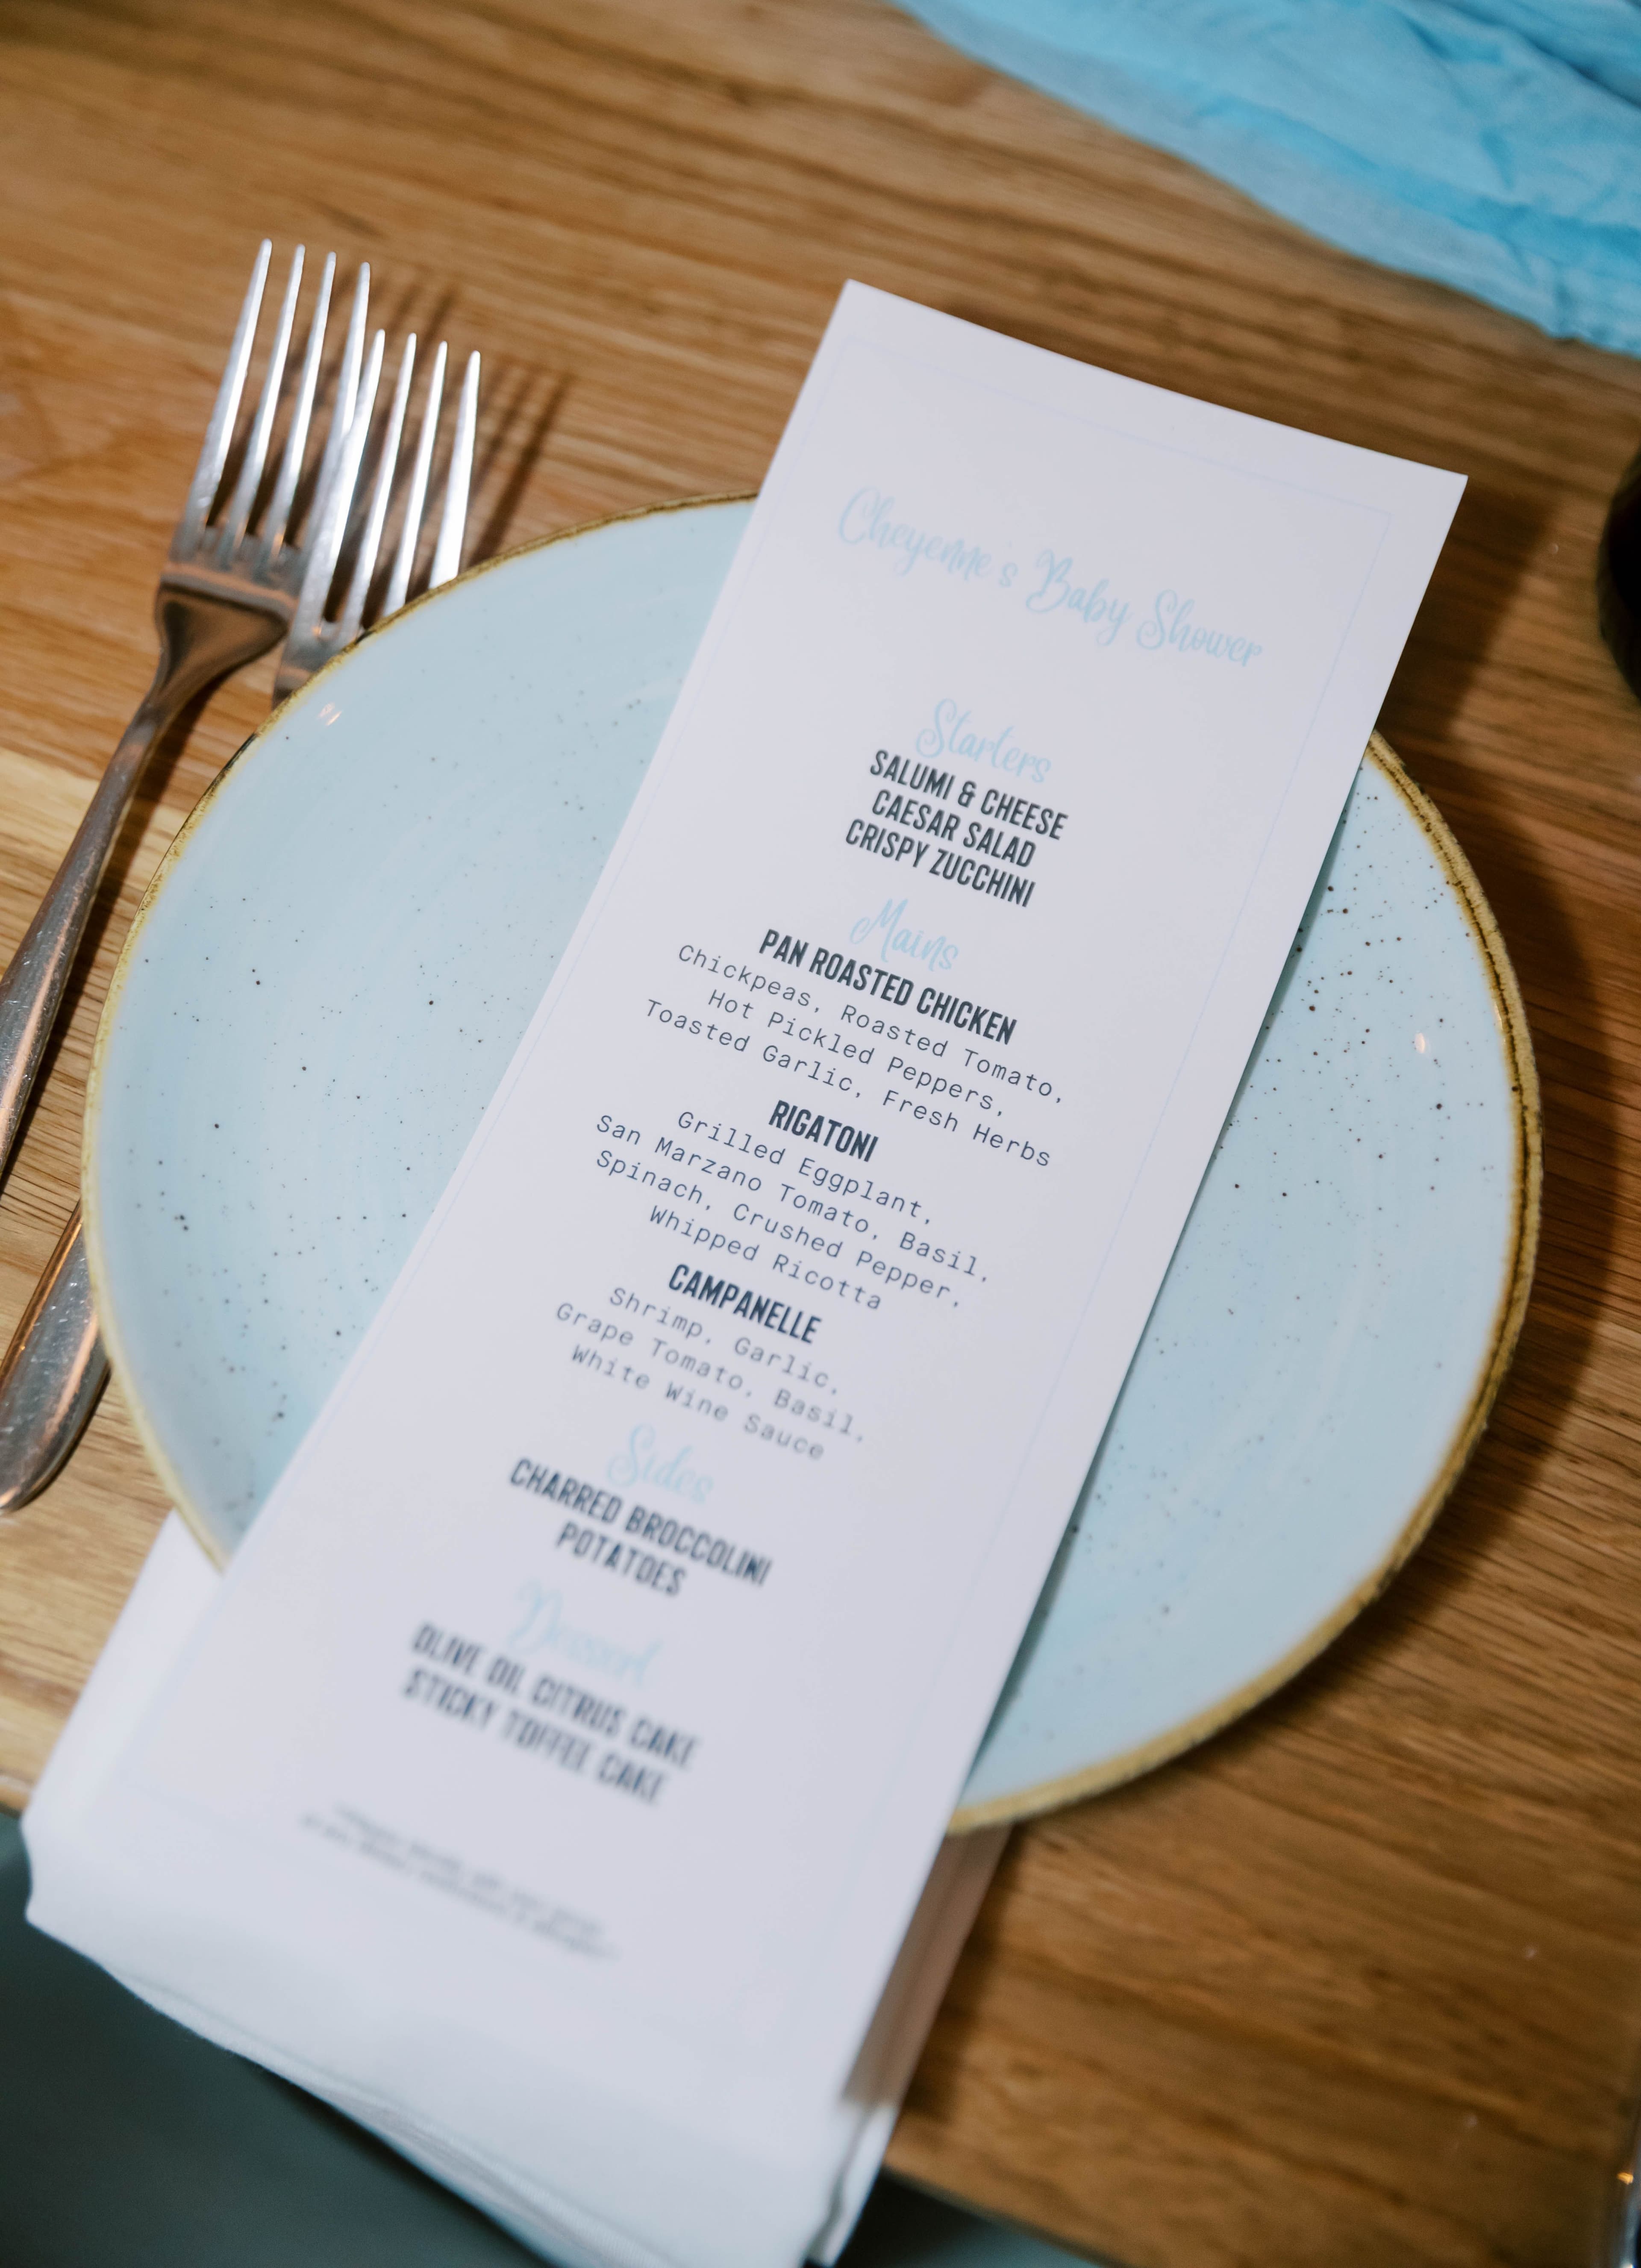 Cheyenne's Baby Shower
Starters
SALUMI & CHEESE
CAESAR SALAD
CRISPY ZUCCHINI
Mains
PAN ROASTED CHICKEN
Chickpeas, Roasted Tomato,
Hot Pickled Peppers,
Toasted Garlic, Fresh Herbs
RIGATONI
Grilled Eggplant,
San Marzano Tomato, Basil,
Spinach, Crushed Pepper,
Whipped Ricotta
CAMPANELLE
Shrimp, Garlic,
Grape Tomato, Basil,
White Wine Sauce
Sides
CHARRED BROCCOLINI
POTATOES
Dessert
OLIVE OIL CITRUS CAKE
STICKY TOFFEE CAKE